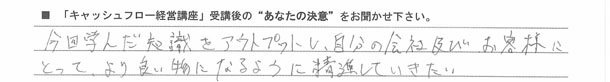 ■ 「キャッシュフロー経営講座」受講後の“あなたの決意”をお聞かせ下さい。
今回学んだ知識をアウトプットし、自分の会社及び、お客様に
とって、より良い物になるように精進していきたい